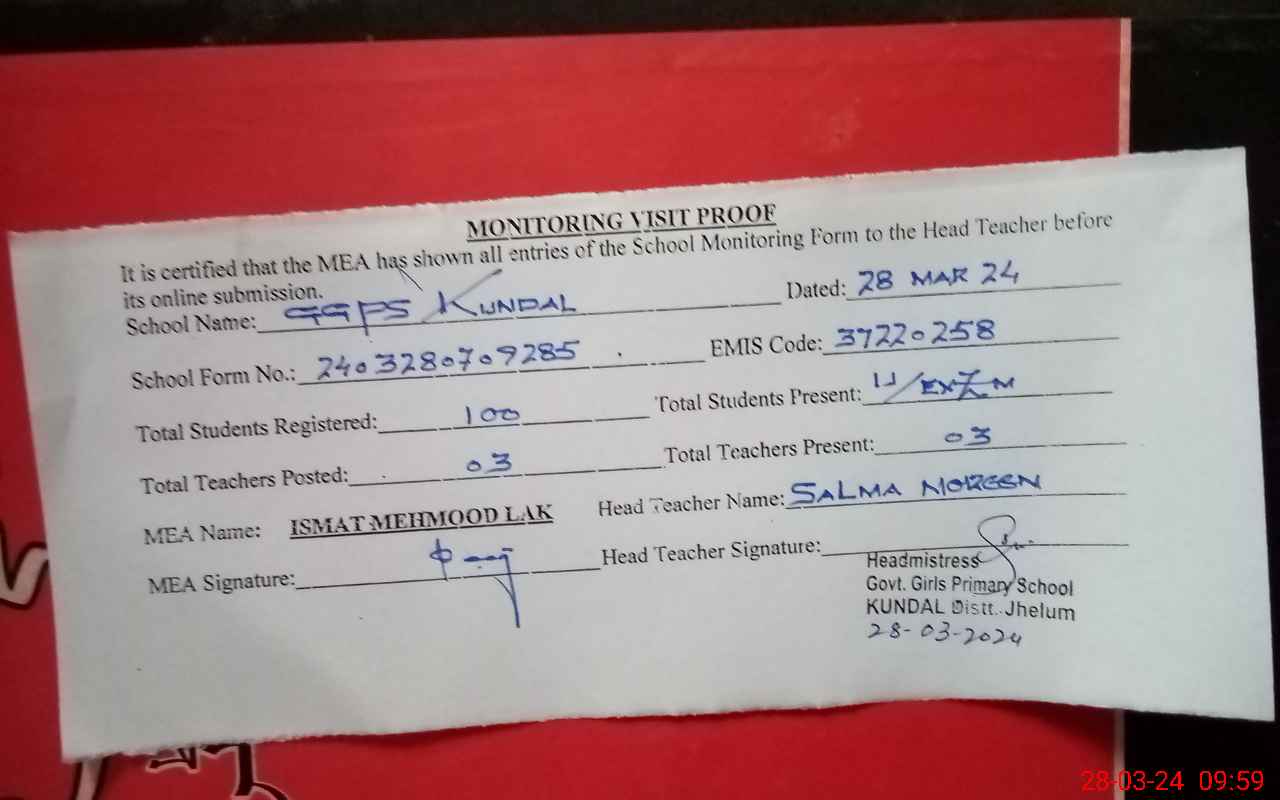 MONITORING VISIT PROOF
It is certified that the MEA has shown all entries of the School Monitoring Form to the Head Teacher before
its online submission.
School Name: GGPS KUNDAL Dated: 28 MAR 24
School Form No.: 2403280709285 EMIS Code: 37220258
Total Students Registered: 100 Total Students Present:
Total Teachers Posted: 03 Total Teachers Present: 03
MEA Name: ISMAT MEHMOOD LAK Head Teacher Name: SALMA NOREEN
MEA Signature: Head Teacher Signature:
Headmistress
Govt. Girls Primary School
KUNDAL Distt. Jhelum
28-03-2024
28-03-24 09:59